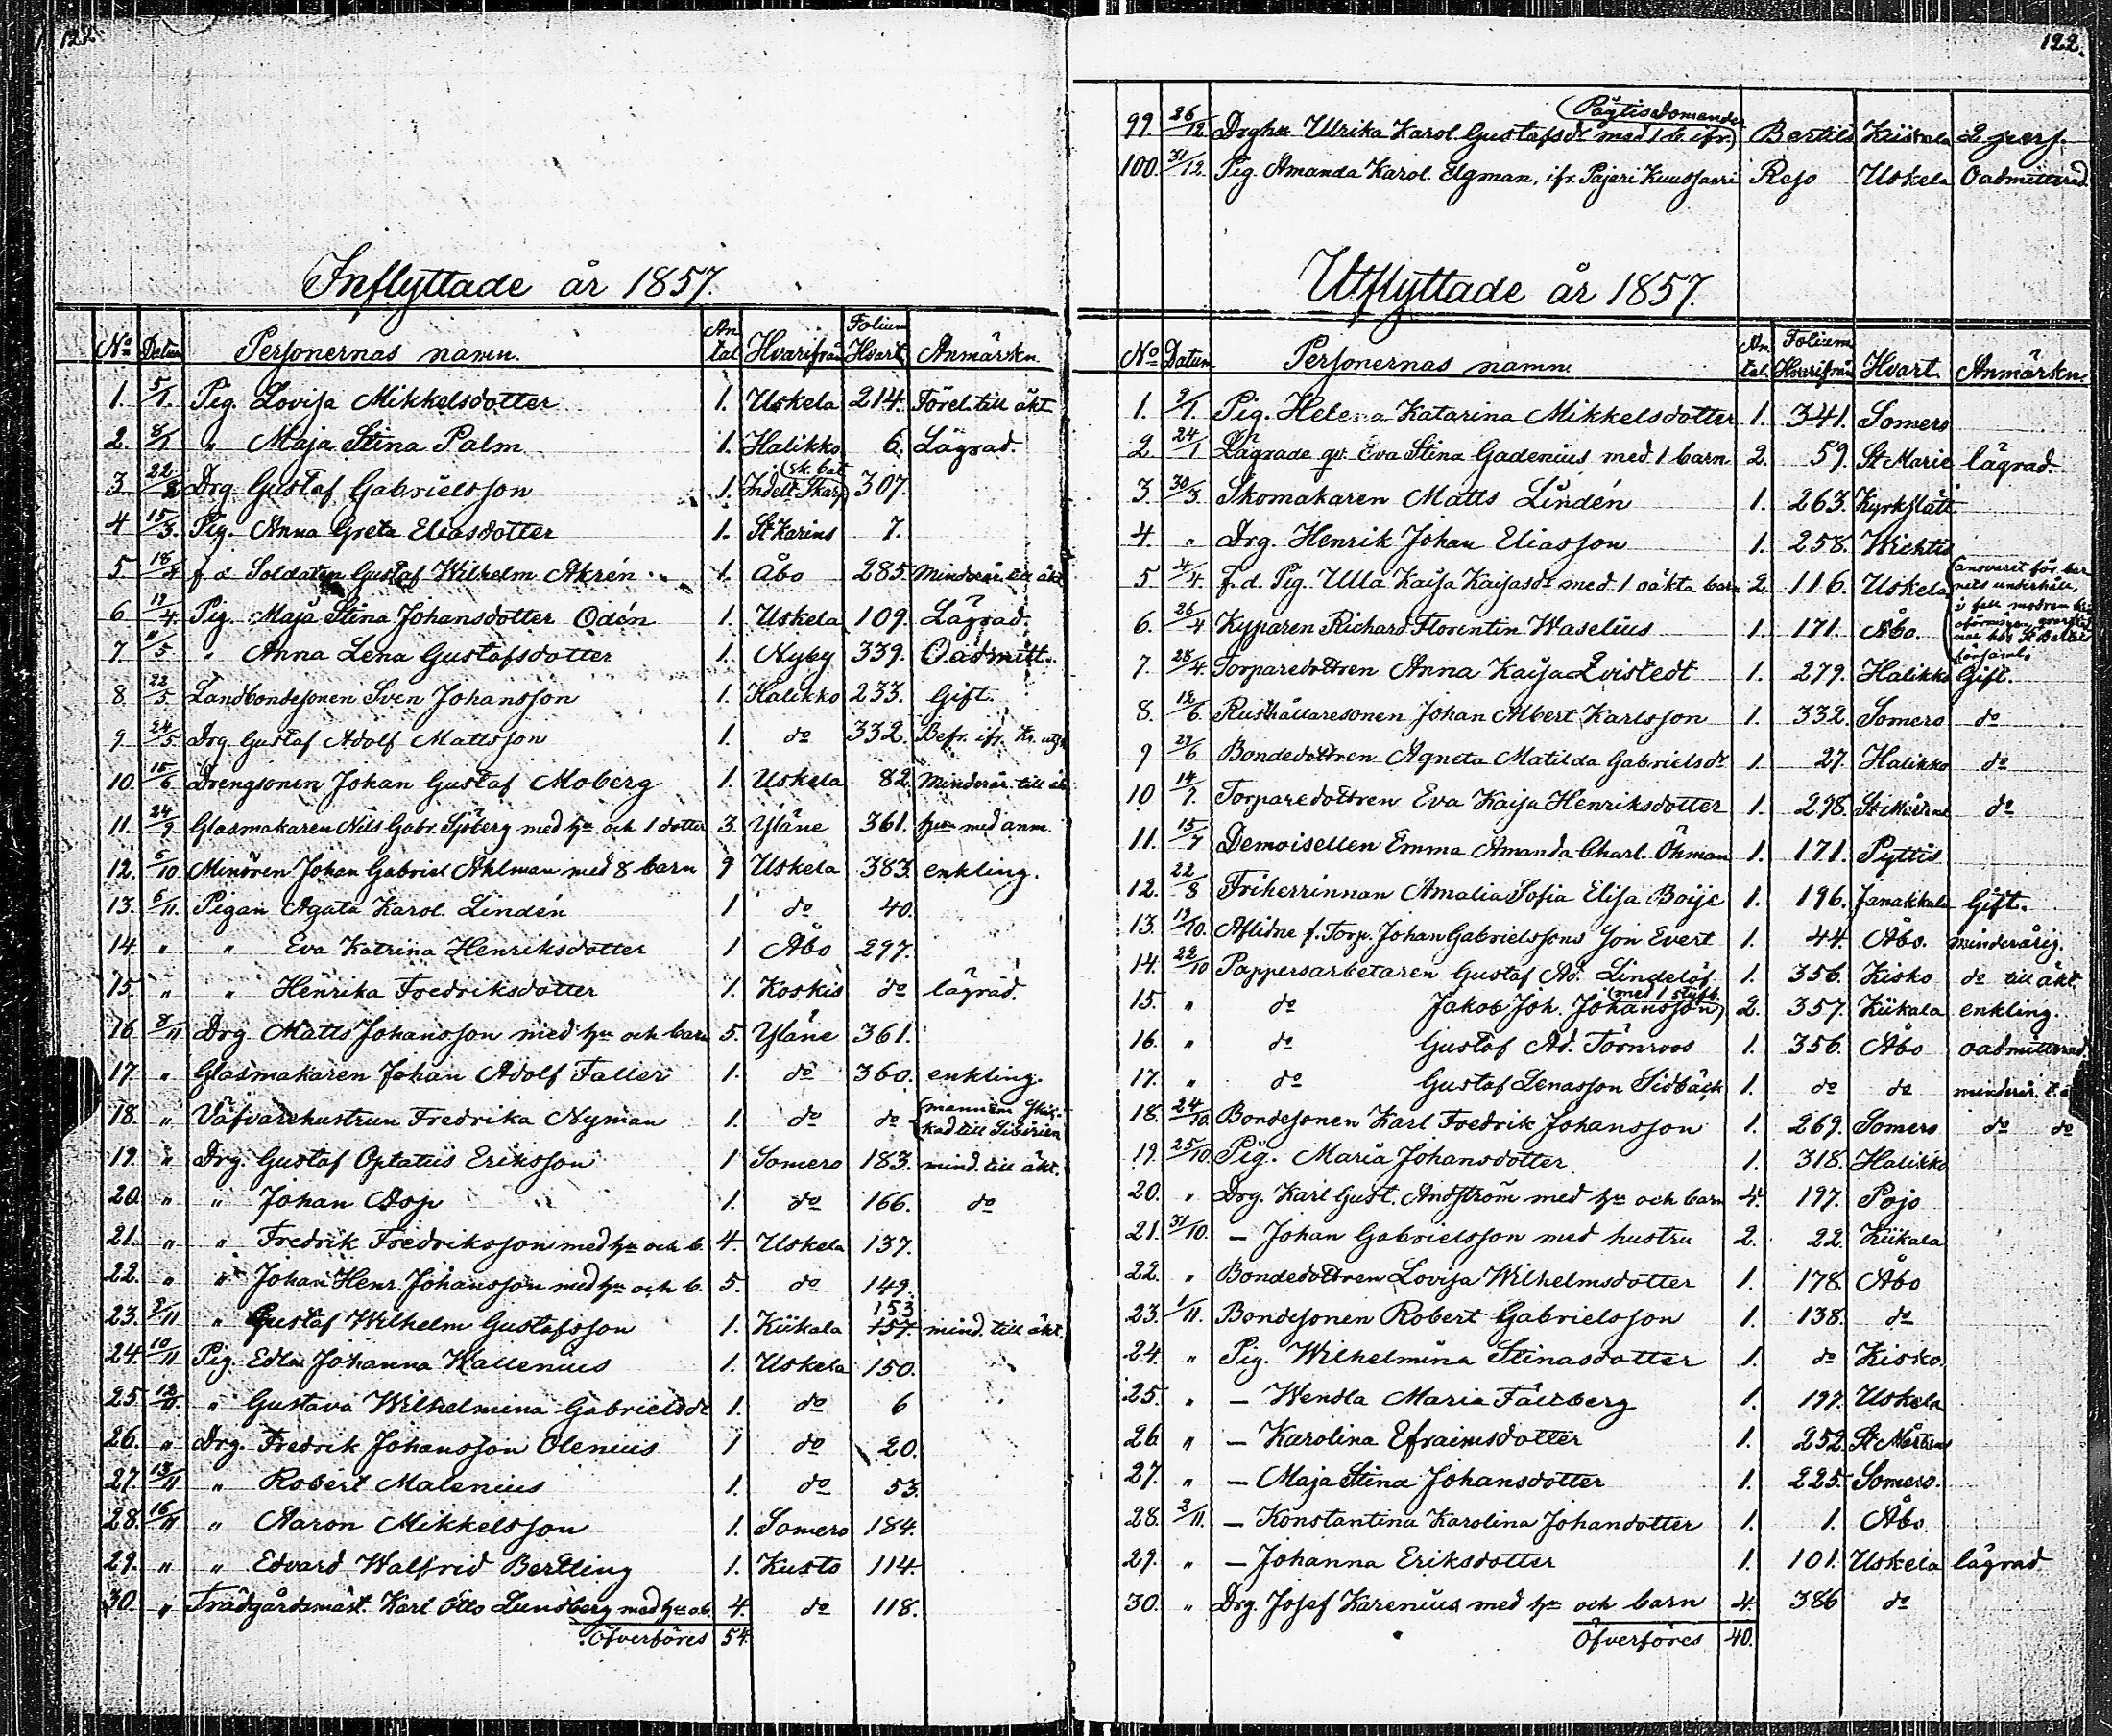 122.
Inflyttade år 1857.
No Datum Personernas namn. Antal Hvarifrån Folium Hvart Anmärkn.
1. 5/1. Pig. Lovisa Mikkelsdotter 1. Uskela 214. Förel. till äkt.
2. 8/1 " Maja Stina Palm 1. Halikko 6. Lägrad.
3. 22/2 Drg. Gustaf Gabrielsson 1. Indelt Skarp (sk. bat. 307.
4 15/3. Pig. Anna Greta Eliasdotter 1. St Karins 7.
5 18/4 f. d. Soldaten Gustaf Wilhelm Akrén 1. Åbo 285. Minderår. till äkt
6 19/4. Pig. Maja Stina Johansdotter Odén 1. Uskela 109. Lägrad.
7. 11/5 " Anna Lena Gustafsdotter 1. Nyby 339. Oadmitt.
8. 22/5. Landbondesonen Sven Johansson 1. Halikko 233. Gift.
9 24/5. Drg. Gustaf Adolf Mattsson 1. do 332. Befr. ifr. Kr. utsk
10. 15/6. Drengsonen Johan Gustaf Moberg 1. Uskela 82. Minderår. till äk
11. 24/9 Glasmakaren Nils Gabr. Sjöberg med hu och 1 dotter 3. Yläne 361. hun med anm.
12. 5/10 Minören Johan Gabriel Ahlman med 8 barn 9 Uskela 383. enkling.
13. 6/11. Pigan Agata Karol. Lindén 1 do 40.
14. " " Eva Katrina Henriksdotter 1 Åbo 297.
15. " " Henrika Fredriksdotter 1. Koskis do lägrad.
16 8/11 Drg. Matts Johansson med hu och barn 5. Yläne 361.
17. " Glasmakaren Johan Adolf Faller 1. do 360. enkling.
18. " Väfvarehustrun Fredrika Nyman 1. do do (mannen skickad till Sibirien
19. " Drg. Gustaf Optatus Eriksson 1 Somero 183. mind. till äkt.
20. " " Johan Asp 1. do 166. do
21. " " Fredrik Fredriksson med hu och b. 4. Uskela 137.
22. " " Johan Henr. Johansson med hu och b. 5. do 149.
23. 9/11 " Gustaf Wilhelm Gustafsson 1. Kiikala 153 157. mind. till äkt.
24. 10/11 Pig. Edla Johanna Wallenius 1. Uskela 150.
25. 12/11. " Gustava Wilhelmina Gabrielsdr 1. do 6
26. " Drg. Fredrik Johansson Olenius 1 do 20.
27. 13/11 " Robert Malenius 1. do 53.
28. 16/11 " Aaron Mikkelsson 1. Somero 184.
29. " " Edvard Walfrid Bertling 1. Kusto 114.
30. " Trädgårdsmäst. Karl Otto Lundberg med hu o. b. 4. do 118.
Öfverföres 54.
122.
99. 26/12. Drghu Ulrika Karol. Gustafsdr med 1 b. ifr. (Päytisedomender) Bertils Kiikala 2 pers.
100. 31/12. Pig. Amanda Karol. Elgman, ifr. Pajari Kuusjoeri Reso Uskela Oadmitterad
Utflyttade år 1857.
No Datum Personernas namn. Antal Folium Hvarifrån Hvart. Anmärkn.
1. 9/1. Pig. Helena Katarina Mikkelsdotter 1. 341. Somero
2 24/1 Lägrade qv. Eva Stina Gadenius med 1 barn 2. 59. St Marie lägrad.
3. 30/3. Skomakaren Matts Lindén 1. 263. Kyrkslätt
4. " Drg. Henrik Johan Eliasson 1. 258. Wichtis
5. 4/4. f. d. Pig. Ulla Kaisa Kaijasdr med 1 oäkta barn 2. 116. Uskela (ansvaret för barnets underhåll, i fall modren oförmögen, hos St Bertils församl.
6. 26/4 Kyparen Richard Florentin Waselius 1. 171. Åbo.
7. 28/4. Torparedottren Anna Kaisa Qvistedt 1. 279. Halikko Gift.
8. 12/6. Rusthållaresonen Johan Albert Karlsson 1. 332. Somero do
9 23/6 Bondedottren Agneta Matilda Gabrielsdr 1. 27. Halikko do
10 14/7. Torparedottren Eva Kaisa Henriksdotter 1. 298. St Mårtens do
11. 15/7 Demoisellen Emma Amanda Charl. Öhman 1. 171. Pyttis
12. 22/8 Friherrinnan Amalia Sofia Elisa Boije 1. 196. Janakkala Gift.
13. 19/10. Aflidne f. Torp. Johan Gabrielssons son Evert 1. 44. Åbo. minderårig.
14. 22/10 Pappersarbetaren Gustaf Ad. Lindelöf 1. 356. Kisko do till äkt.
15. " do Jakob Joh. Johansson (med 1 styfb.) 2. 357. Kiikala enkling.
16. " do Gustaf Ad. Törnroos 1. 356. Åbo oadmitterad.
17. " do Gustaf Lenasson Sidbäck 1. do do minderår. t. ä
18. 24/10. Bondesonen Karl Fredrik Johansson 1. 269. Somero do do
19. 25/10. Pig. Maria Johansdotter 1. 318. Halikko
20. " Drg. Karl Gust. Andström med hu och barn 4. 197. Pojo
21. 31/10. — Johan Gabrielsson med hustru 2. 22. Kiikala
22. " Bondedottren Lovisa Wilhelmsdotter 1. 178. Åbo
23. 1/11. Bondesonen Robert Gabrielsson 1. 138. do
24. " Pig. Wilhelmina Stinasdotter 1. do Kisko.
25. " — Wendla Maria Fältberg 1. 197. Uskela
26. " — Karolina Efraimsdotter 1. 252. St Mårtens
27. " — Maja Stina Johansdotter 1. 225. Somero.
28. 2/11. — Konstantina Karolina Johandotter 1. 1. Åbo.
29. " — Johanna Eriksdotter 1. 101. Uskela lägrad
30. " Drg. Josef Karenius med hu och barn 4. 386 do
Öfverföres 40.